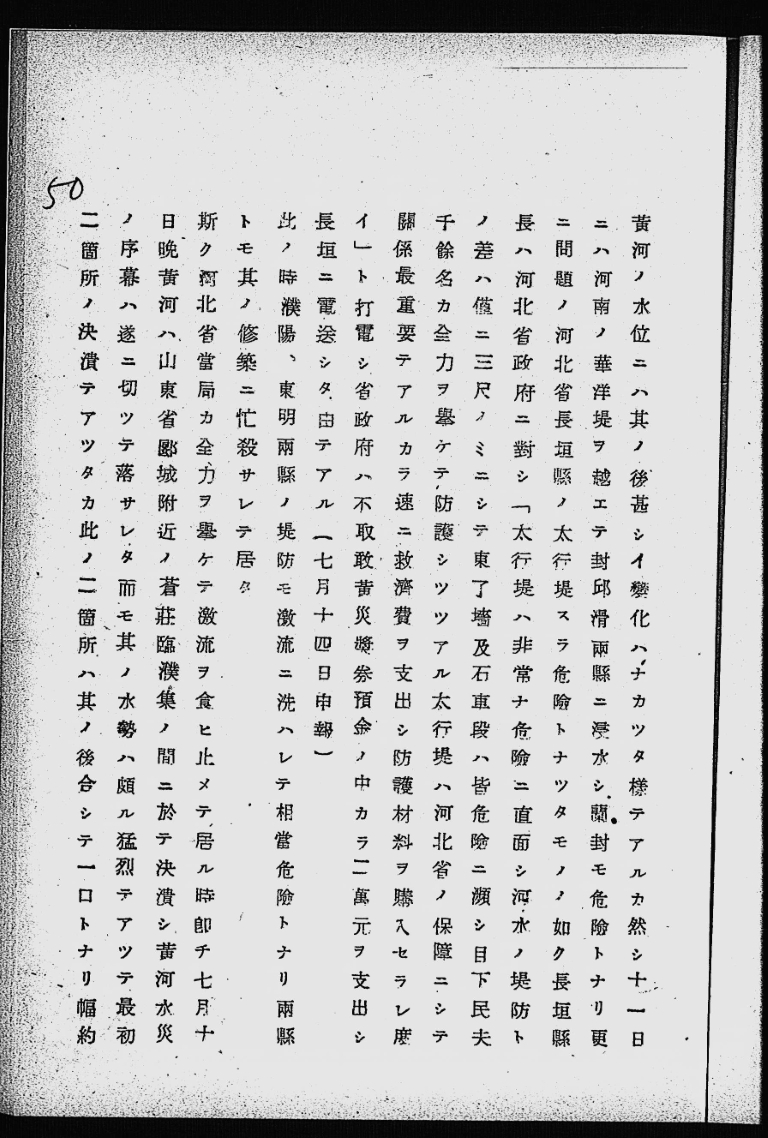 黃河ノ水位ニハ其ノ後甚シイ變化ハナカツタ樣テアルカ然シ十一日
ニハ河南ノ華洋堤ヲ越エテ封邱滑兩縣ニ浸水シ蘭封モ危險トナリ更
ニ問題ノ河北省長垣縣ノ太行堤スラ危險トナツタモノノ如ク長垣縣
長ハ河北省政府ニ對シ「太行堤ハ非常ナ危險ニ直面シ河水ノ堤防ト
ノ差ハ僅ニ三尺ノミニシテ東了墻及石車段ハ皆危險ニ瀕シ目下民夫
千餘名カ全力ヲ擧ケテ防護シツツアル太行堤ハ河北省ノ保障ニシテ
關係最重要テアルカラ速ニ救濟費ヲ支出シ防護材料ヲ購入セラレ度
イ」ト打電シ省政府ハ不取敢黃災獎券預金ノ中カラ二萬元ヲ支出シ
長垣ニ電送シタ由テアル(七月十四日申報)
此ノ時濮陽、東明兩縣ノ堤防モ激流ニ洗ハレテ相當危險トナリ兩縣
トモ其ノ修築ニ忙殺サレテ居タ
斯ク河北省當局カ全力ヲ擧ケテ激流ヲ食ヒ止メテ居ル時卽チ七月十
日晩黃河ハ山東省鄄城附近ノ蒼莊臨濮集ノ間ニ於テ決潰シ黃河水災
ノ序幕ハ遂ニ切ツテ落サレタ而モ其ノ水勢ハ頗ル猛烈テアツテ最初
二箇所ノ決潰テアツタカ此ノ二箇所ハ其ノ後合シテ一口トナリ幅約
50